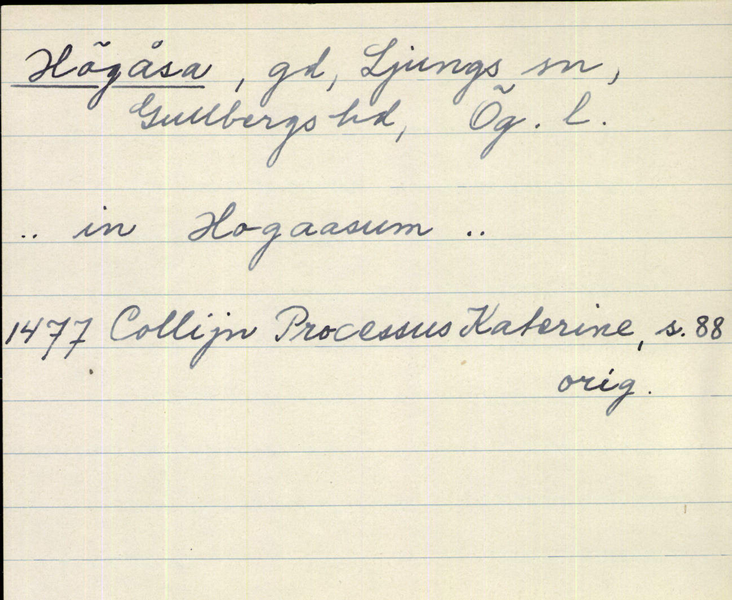 Högåsa, gd, Ljungs sn,
Gullbergs hd, Ög. l.
.. in Hogaasum ..
1477 Collijn Processus Katerine, s. 88
orig.